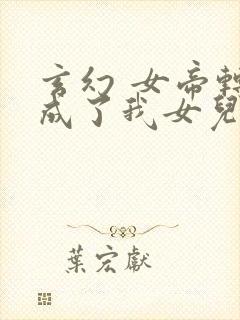 玄幻 女帝轉
成了我女兒
葉宏獻